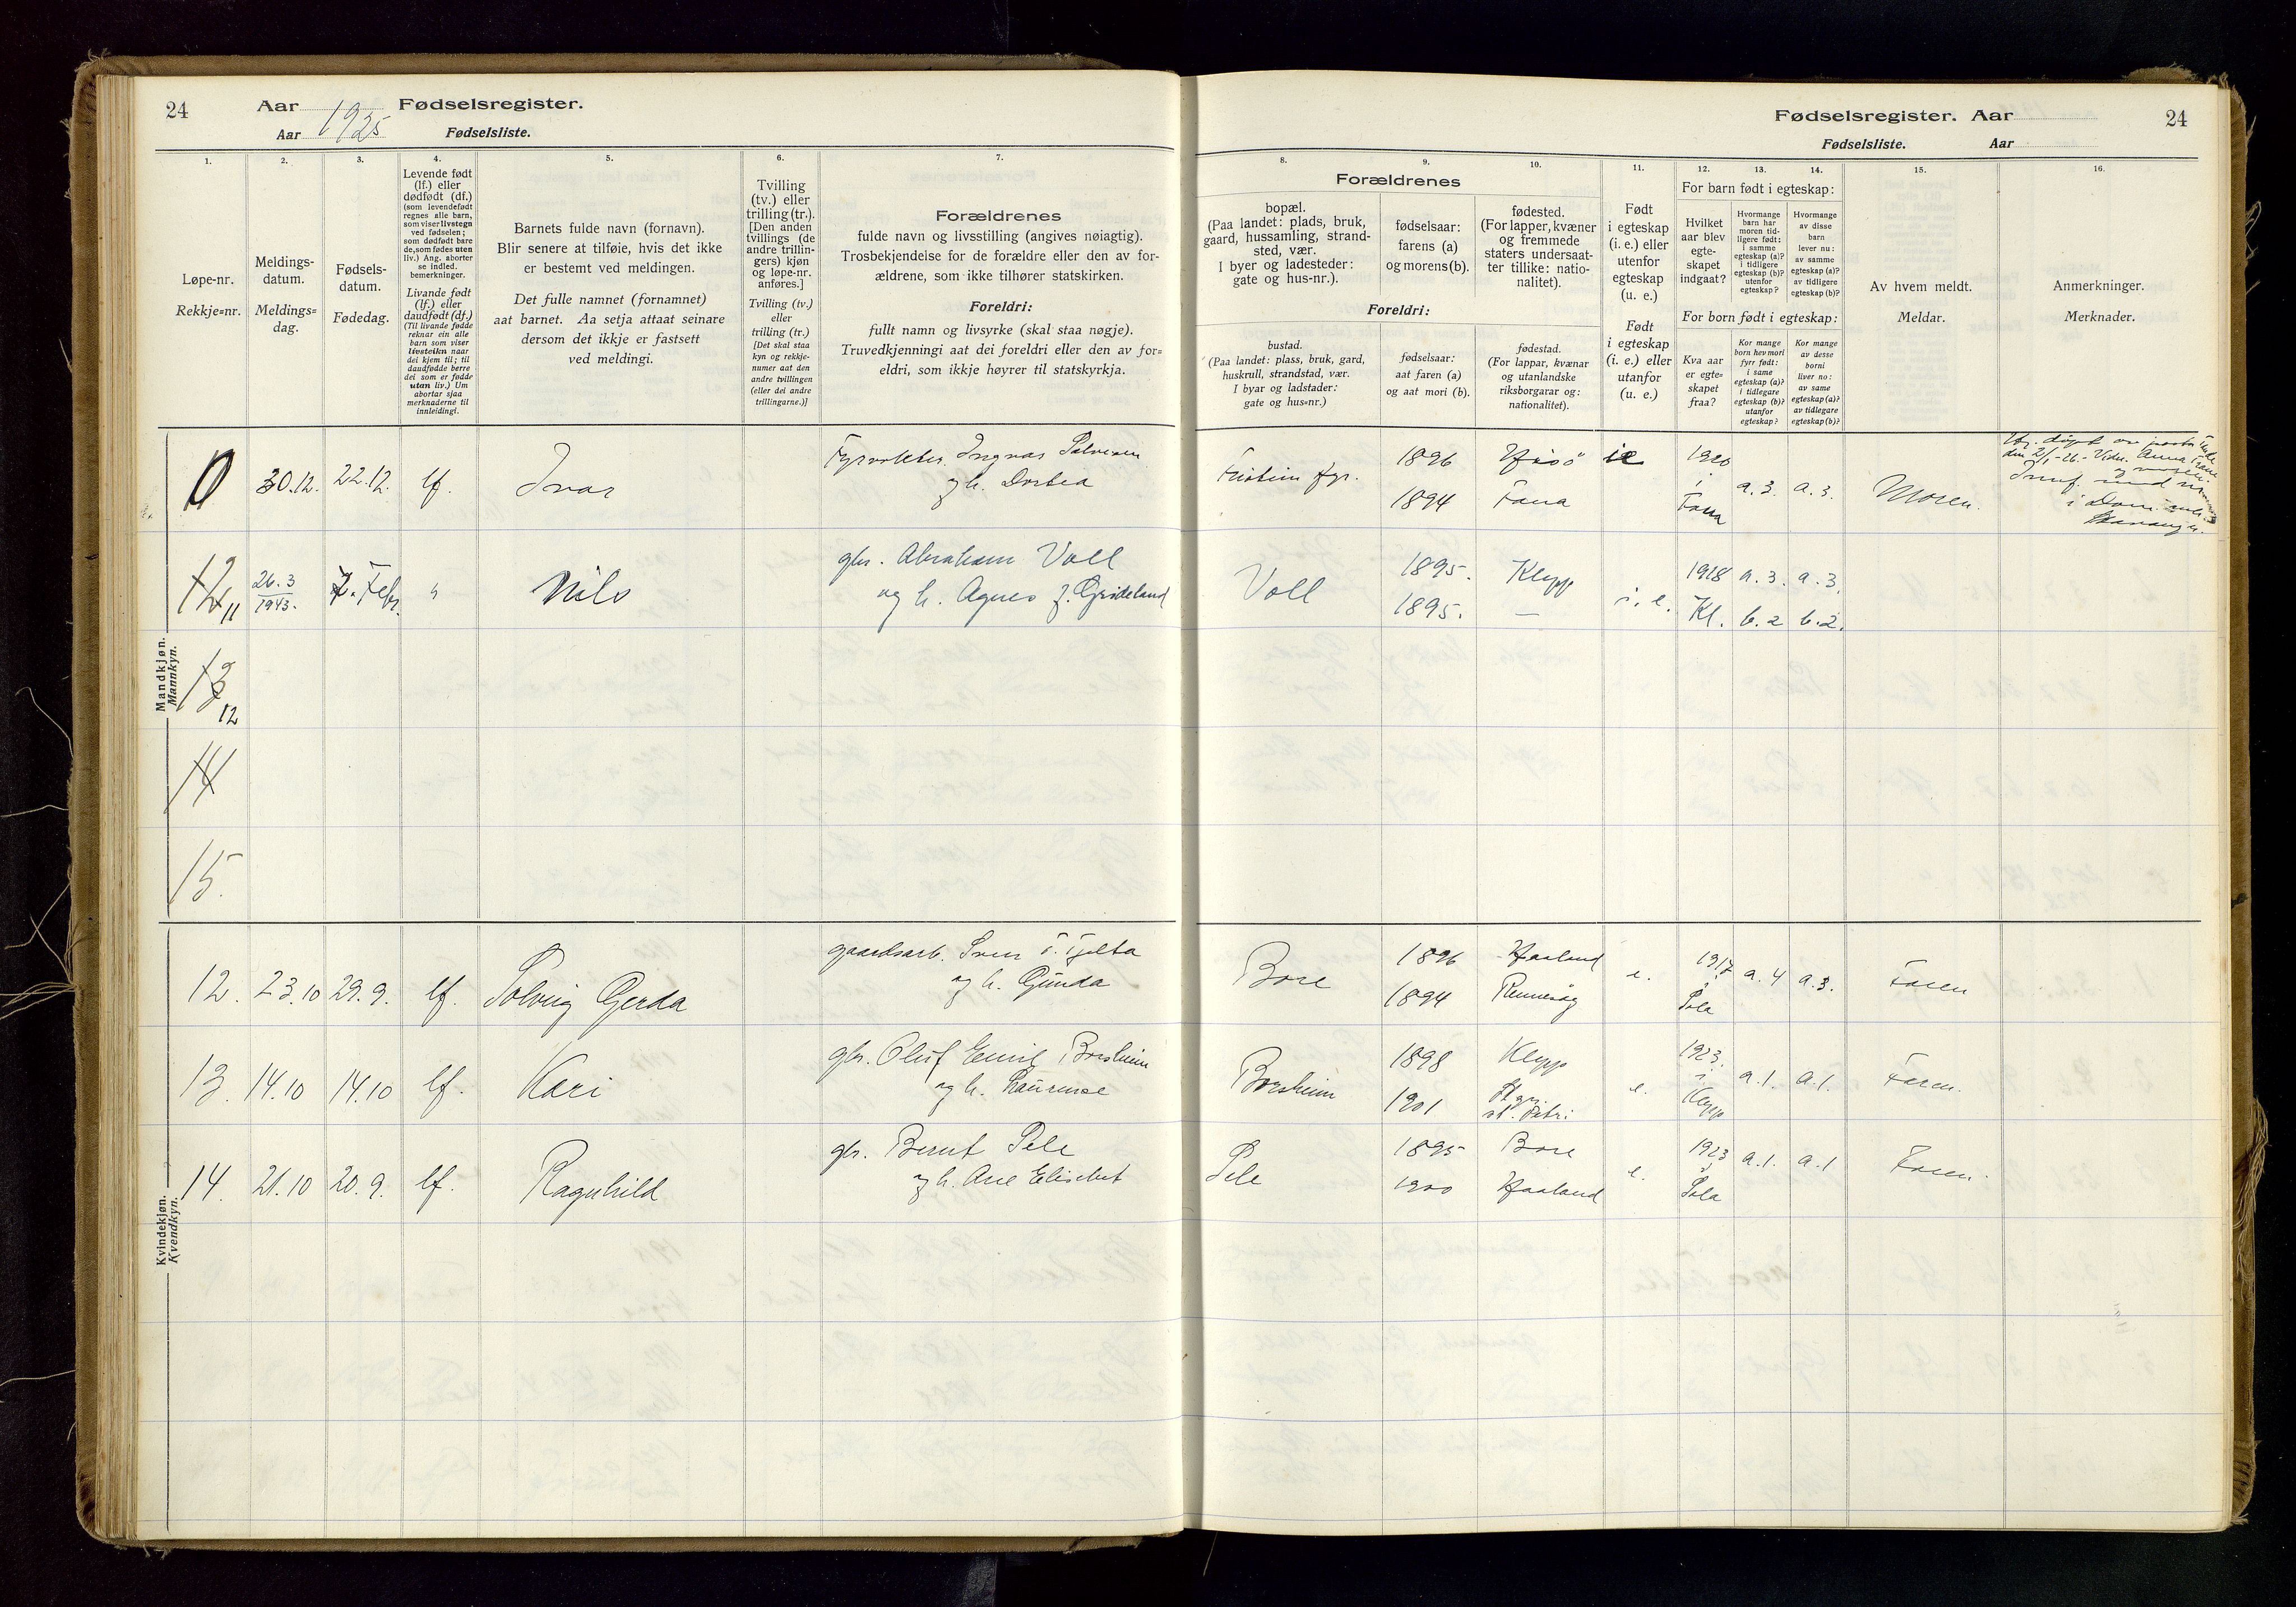 24
Aar 1925 Fødselsregister.
Aar Fødselsliste.
1.
Løpe-nr.
Rekkje=nr.
2.
Meldings-
datum.
Meldings=
dag.
3.
Fødsels-
datum.
Fødedag.
4.
Levende født
(lf.) eller
dødfødt (df.)
(som levendefødt
regnes alle barn,
som viser livstegn
ved fødselen;
som dødfødt bare
de, som fødes uten
liv.) Ang. aborter
se indled.
bemerkninger.
Livande født
(lf.) eller
daudfødt (df.)
(Til livande fødde
reknar ein alle
barn som viser
livsteikn naar
dei kjem til; til
daudfødde berre
dei som er fødde
utan liv.) Um
abortar sjaa
merknaderne til
innleidingi.
5.
Barnets fulde navn (fornavn).
Blir senere at tilføie, hvis det ikke
er bestemt ved meldingen.
Det fulle namnet (fornamnet)
aat barnet. Aa setja attaat seinare
dersom det ikkje er fastsett
ved meldingi.
6.
Tvilling
(tv.) eller
trilling (tr.).
[Den anden
tvillings (de
andre trillin-
gers) kjøn
og løpe-nr.
anføres.]
Tvilling (tv.)
eller
trilling (tr.)
[Det skal staa
kyn og rekkje-
numer aat den
andre tvillingen
(eller dei andre
trillingarne.)]
7.
Forældrenes
fulde navn og livsstilling (angives nøiagtig).
Trosbekjendelse for de forældre eller den av for-
ældrene, som ikke tilhører statskirken.
Foreldri:
fullt namn og livsyrke (skal staa nøgje).
Truvedkjenningi aat dei foreldri eller den av for=
eldri, som ikkje høyrer til statskyrkja.
Mandkjøn.
Mannkyn.
30.12. 22.12. lf. Ivar
og h. Dortea
12 11 26.3 1943. 7. Febr. " Nils
gbr. Abraham Voll
og h. Agnes f. Grødeland
13
12
14
15.
Kvindekjøn.
Kvendkyn.
12. 23.10 29.9. lf. Solveig Gerda
gaardsarb. Sven T. Tjelta
og h. Gunda
13. 14.10 14.10 lf. Kari
gbr. Oluf Emil Borsheim
og h. Laurense
14. 21.10 20.9. lf. Ragnhild
gbr. Berent Sele
og h. Ane Elisebet
Fødselsregister. Aar
24
Fødselsliste. Aar
8.
Forældrenes
bopæl.
(Paa landet: plads, bruk,
gaard, hussamling, strand-
sted, vær.
I byer og ladesteder:
gate og hus-nr.).
Foreldri:
bustad.
(Paa landet: plass, bruk, gard,
huskrull, strandstad, vær.
I byar og ladstader:
gate og hus=nr.)
9.
fødselsaar:
farens (a)
og morens (b).
fødselsaar:
aat faren (a)
og aat mori (b).
10.
fødested.
(For lapper, kvæner
og fremmede
staters undersaat-
ter tillike: natio-
nalitet).
fødestad.
(For lappar, kvænar
og utanlandske
riksborgarar og:
nationalitet).
11.
Født
i egteskap
(i. e.) eller
utenfor
egteskap
(u. e.)
Født
i egteskap
(i. e.) eller
utanfor
(u. e.)
12.
For barn født i egteskap:
Hvilket
aar blev
egte-
skapet
indgaat?
For born født i egteskap:
Kva aar
er egte=
skapet
fraa?
13.
Hvormange
barn har
moren tid-
ligere født:
i samme
egteskap (a)?
i tidligere
egteskap (b)?
utenfor
egteskap?
Kor mange
born hev mori
fyrr født:
i same
egteskap (a)?
i tidlegare
egteskap (b)?
utanfor
egteskap?
14.
Hvormange
av disse
barn
lever nu:
av samme
egteskap (a)?
av tidligere
egteskap (b)?
Kor mange
av desse
borni
liver no:
av same
egteskap (a)?
av tidlegare
egteskap (b)?
15.
Av hvem meldt.
Meldar.
16.
Anmerkninger.
Merknader.
Feistein fyr. 1896 ie 1920
1894 Fana i Fana a.3. a.3. Moren.
Voll 1895. Klepp i. e. 1918 a.3. a.3.
1895. — Kl. b.2 b.2.
Bore 1896 Haaland e. 1917 a.4 a.3. Faren
1894 Rennesøy Sola
Borsheim 1898 Klepp e. 1923. a.1. a.1. Faren.
1901 St. Petri i Klepp
Sele 1895 Bore e. 1923 a.1. a.1 Faren.
1900 Haaland Sola